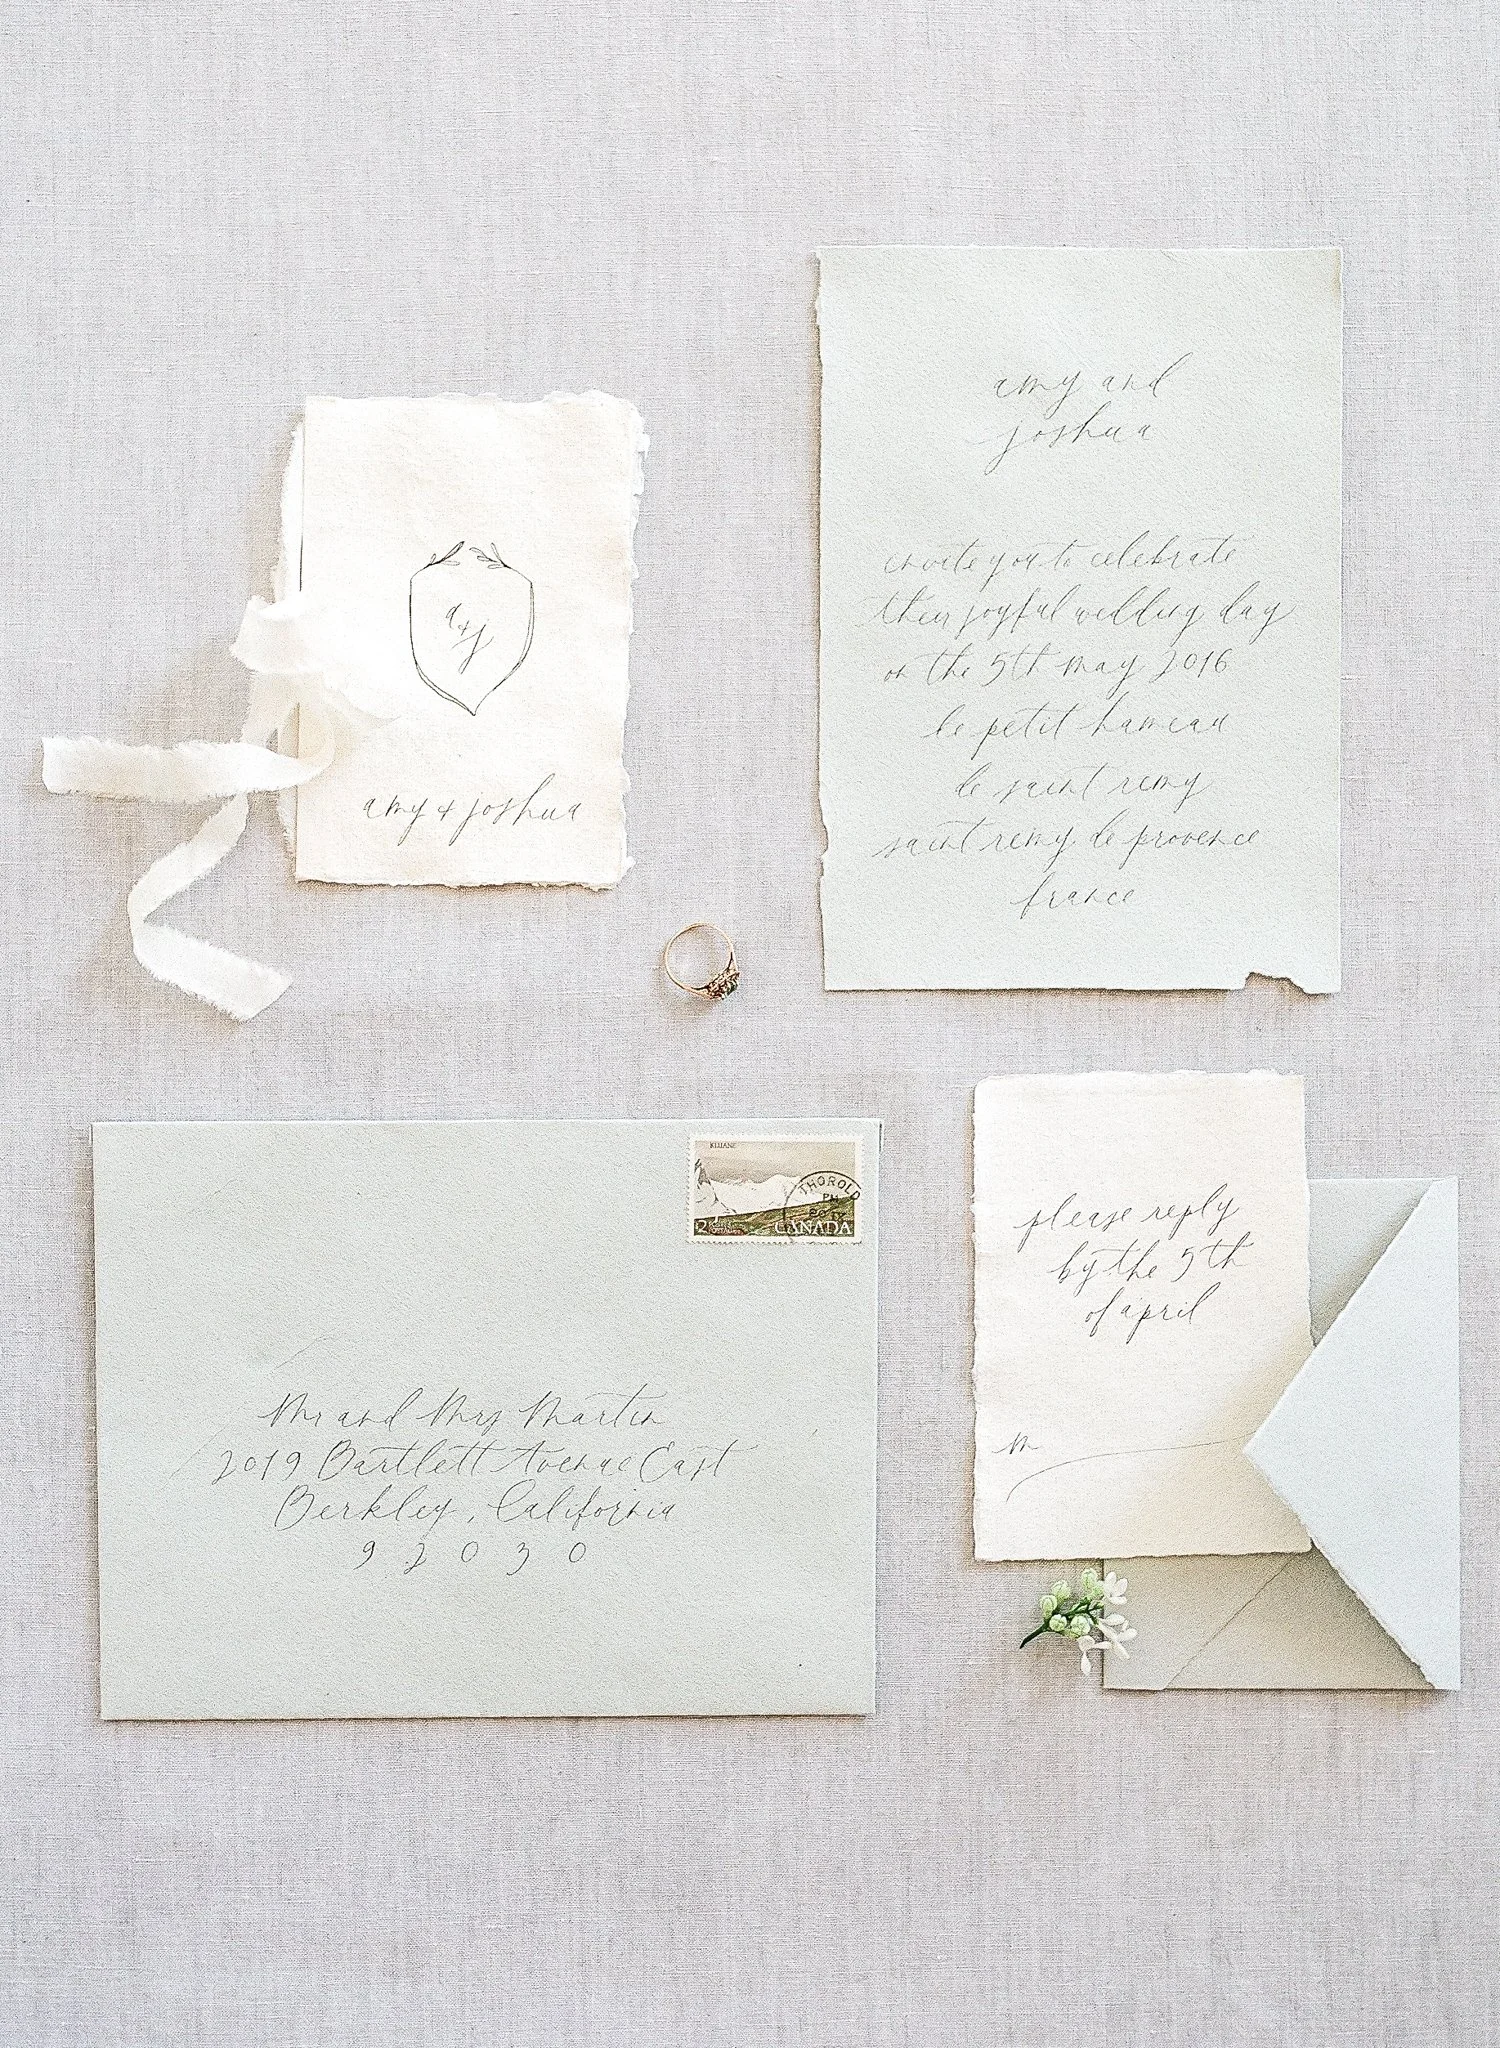 a+j
amy & joshua
amy and
joshua
invite you to celebrate
their joyful wedding day
on the 5th may 2016
le petit hameau
de saint remy
saint remy de provence
france
KLUANE
THOROLD
PM
CANADA
Mr and Mrs Martin
2019 Bartlett Avenue East
Berkley, California
92030
please reply
by the 5th
of april
m